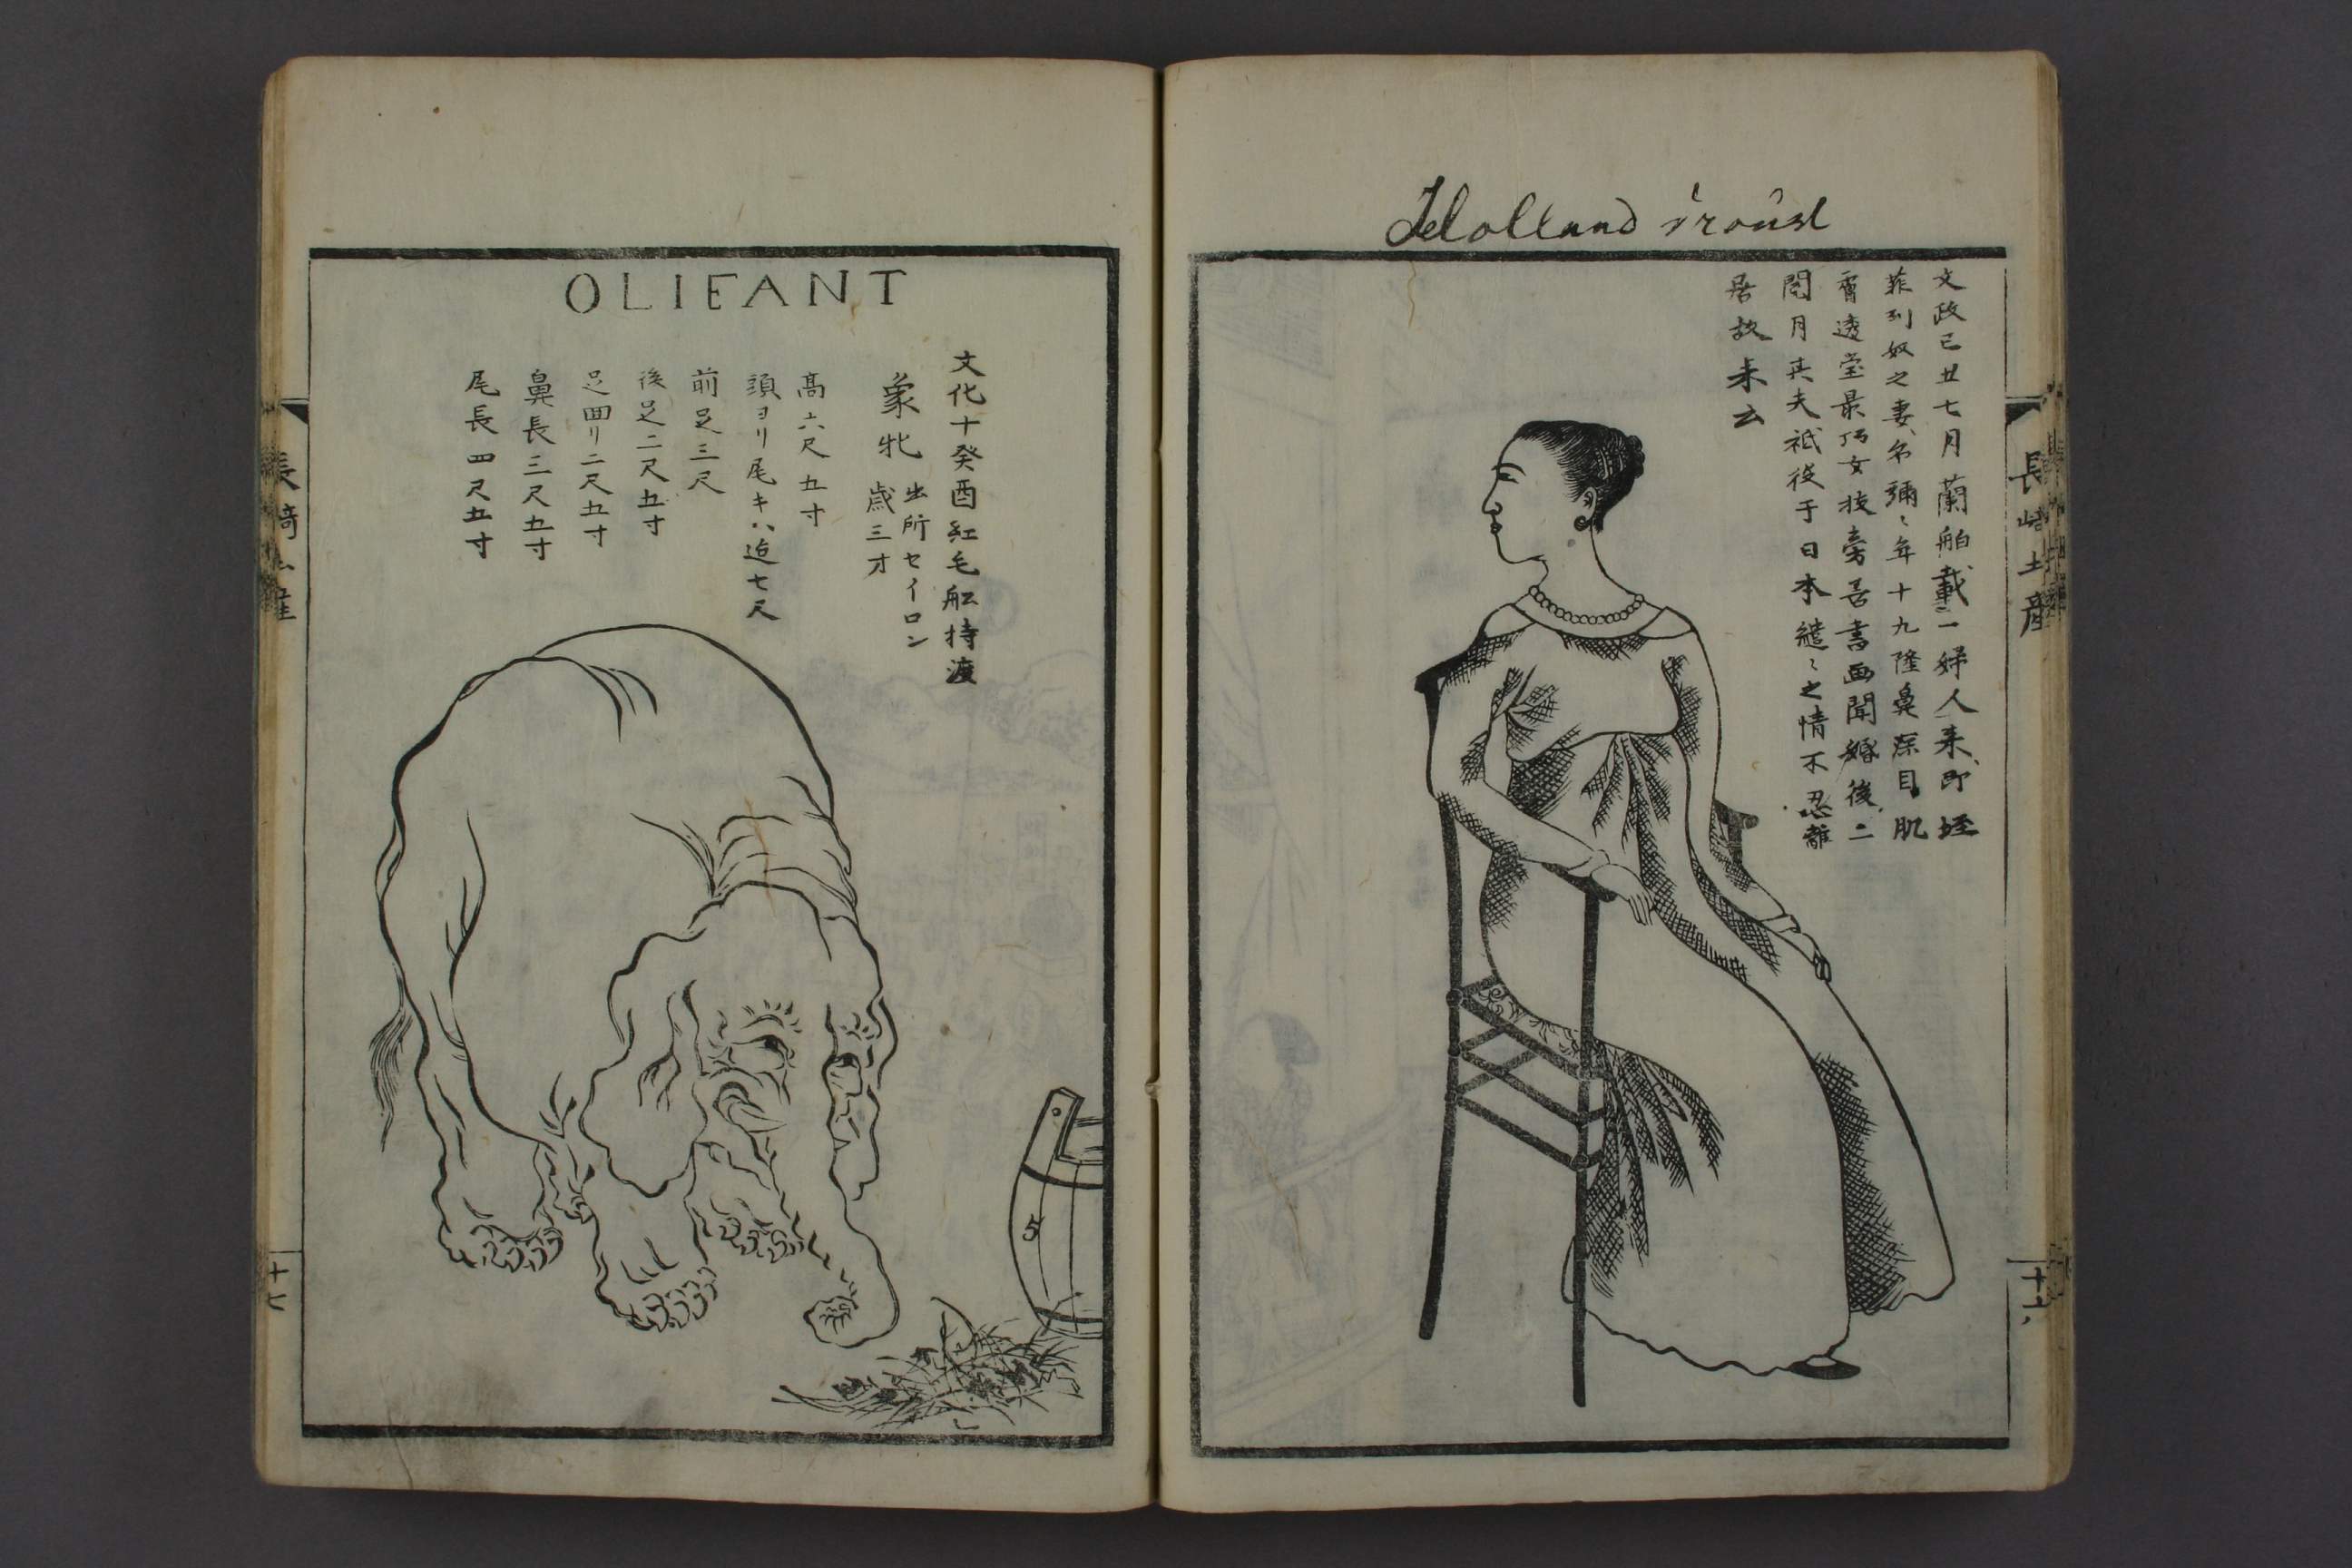 Holland vrouw
文政己丑七月蘭舶載一婦人来即垤
菲列奴之妻名彌〻年十九隆鼻深目肌
膚透瑩最巧女技旁善書画聞婚後二
閲月其夫祗役于日本繾〻之情不忍離
居故来云
長崎土産
十六
OLIFANT
文化十癸酉紅毛舩持渡
象牝
出所セイロン
歳三才
高六尺五寸
頭ヨリ尾キハ迠七尺
前足三尺
後足二尺五寸
足囬リ二尺五寸
鼻長三尺五寸
尾長四尺五寸
5
長崎土産
十七